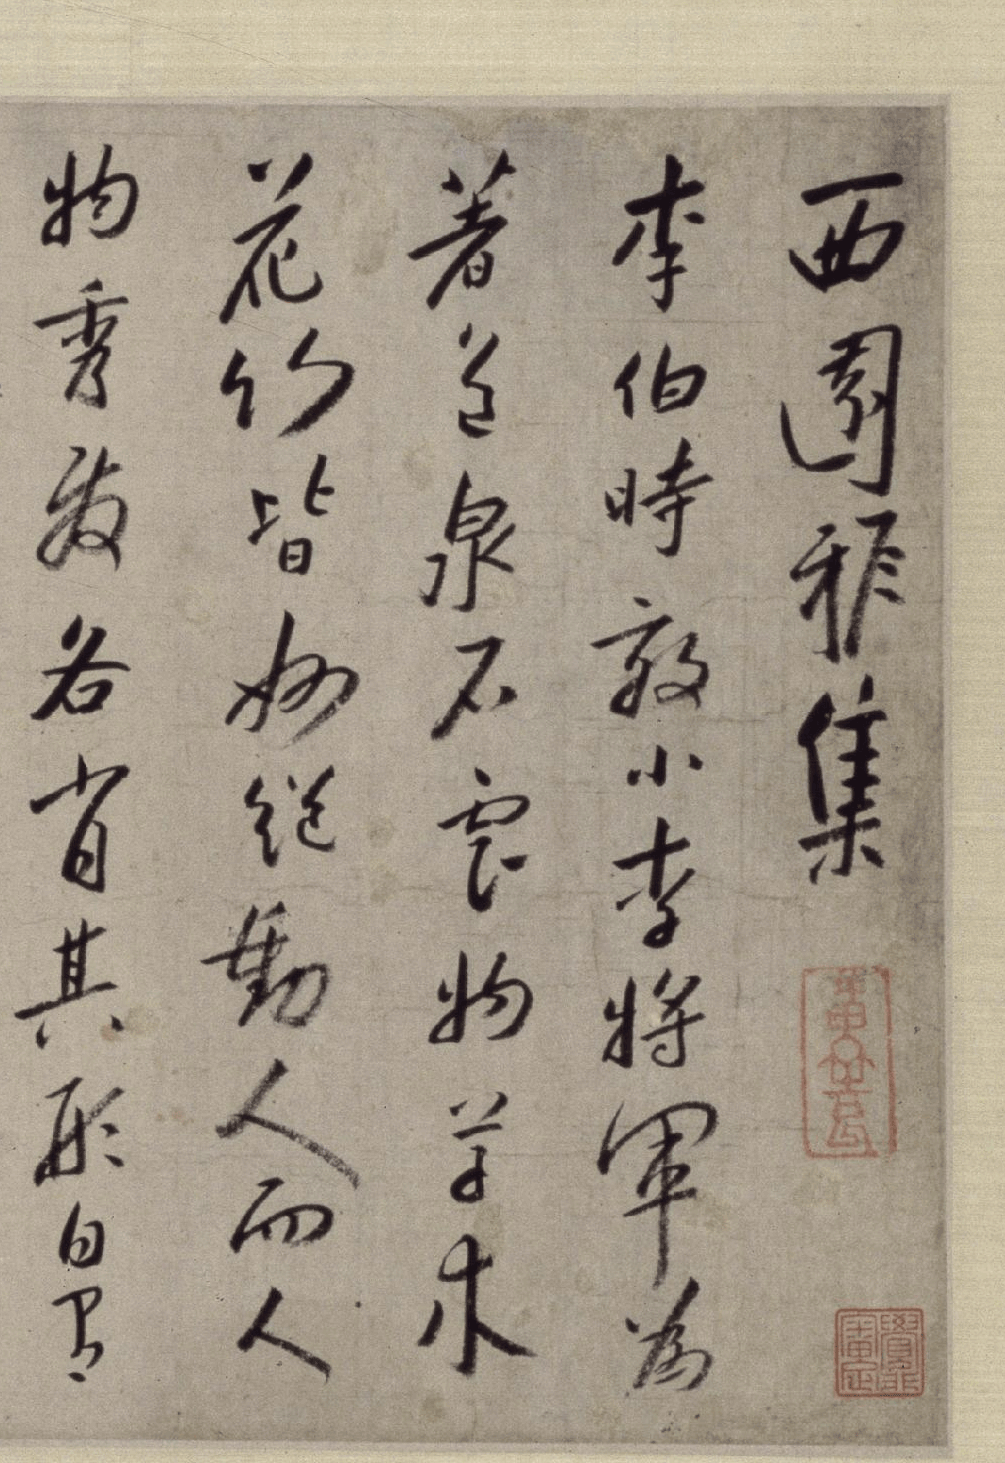 西園雅集
李伯時效小李將軍為
著色泉石雲物草木
花竹皆妙絕動人而人
物秀發各肖其形自有